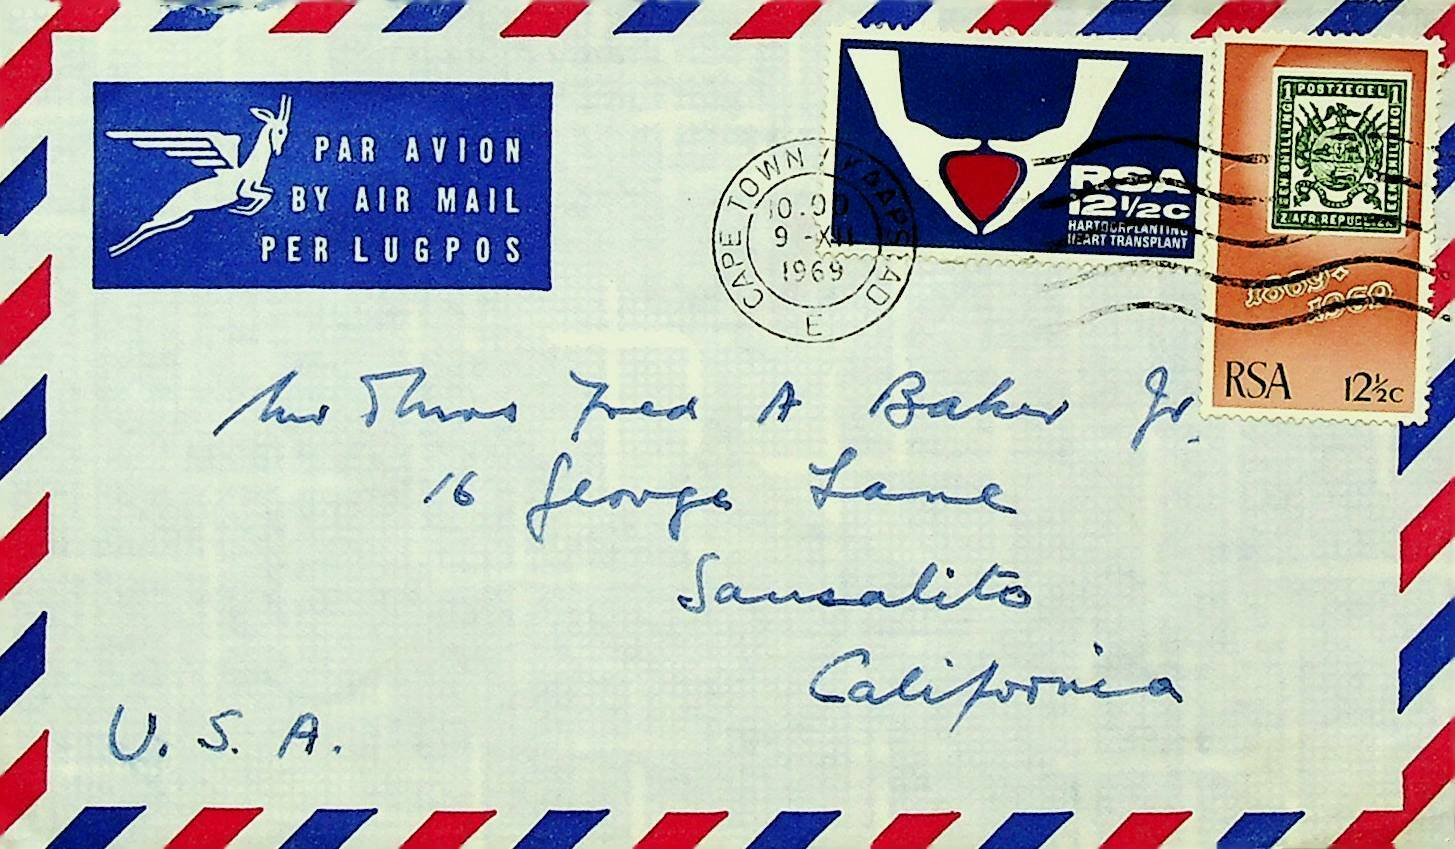 PAR AVION
BY AIR MAIL
PER LUGPOS
CAPE TOWN KAAPSTAD
10.00
9 -XII
1969
E
RSA
12½c
HARTOORPLANTING
HEART TRANSPLANT
POSTZEGEL
1 1
EEN SHILLING EEN SHILLING
Z. AFR. REPUBLIEK
1869·
1969
RSA 12½c
Mr Thos Fred A Baker Jr.
16 George Lane
Sausalito
California
U. S. A.